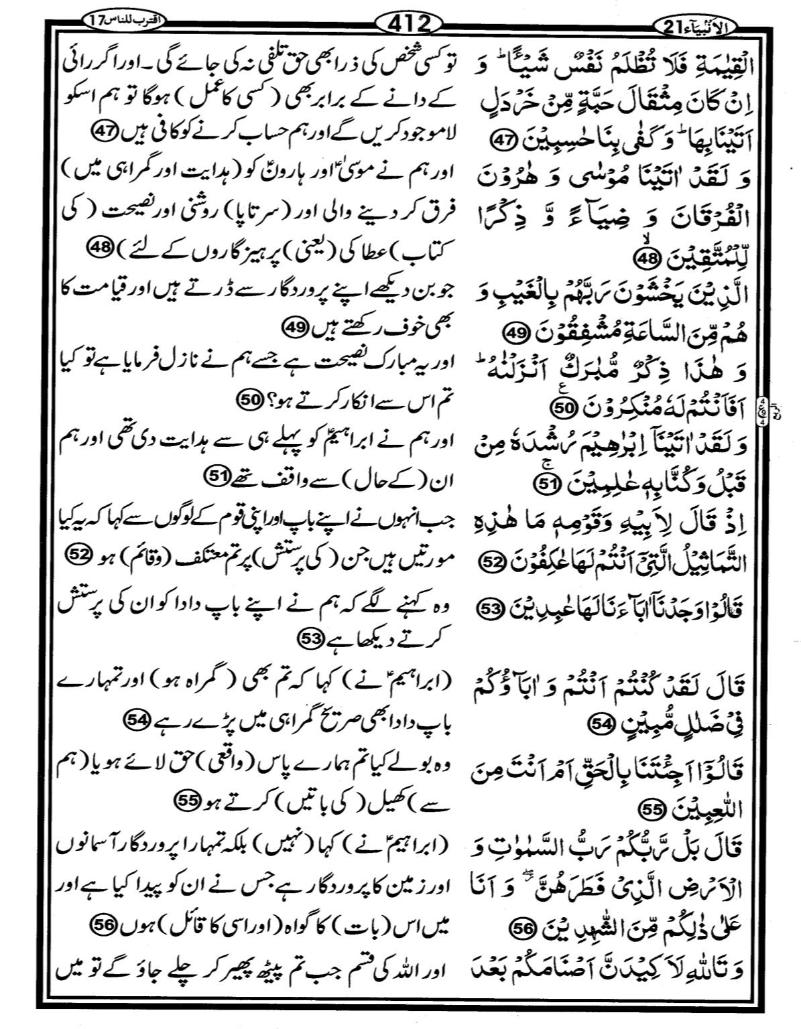 الْاَنْۢبِيَآء 21
412
اقترب للناس 17
الْقِيٰمَةِ فَلَا تُظْلَمُ نَفْسٌ شَيْـًٔا ؕ وَ
اِنْ كَانَ مِثْقَالَ حَبَّةٍ مِّنْ خَرْدَلٍ
اَتَيْنَا بِهَا ؕ وَ كَفٰى بِنَا حٰسِبِيْنَ 47
وَ لَقَدْ اٰتَيْنَا مُوْسٰى وَ هٰرُوْنَ
الْفُرْقَانَ وَ ضِيَآءً وَّ ذِكْرًا
لِّلْمُتَّقِيْنَ ۙ 48
الَّذِيْنَ يَخْشَوْنَ رَبَّهُمْ بِالْغَيْبِ وَ
هُمْ مِّنَ السَّاعَةِ مُشْفِقُوْنَ 49
وَ هٰذَا ذِكْرٌ مُّبٰرَكٌ اَنْزَلْنٰهُ ؕ
اَفَاَنْتُمْ لَهٗ مُنْكِرُوْنَ ع 50
وَ لَقَدْ اٰتَيْنَاۤ اِبْرٰهِيْمَ رُشْدَهٗ مِنْ
قَبْلُ وَ كُنَّا بِهٖ عٰلِمِيْنَ ۚ 51
اِذْ قَالَ لِاَبِيْهِ وَ قَوْمِهٖ مَا هٰذِهِ
التَّمَاثِيْلُ الَّتِيْۤ اَنْتُمْ لَهَا عٰكِفُوْنَ 52
قَالُوْا وَجَدْنَاۤ اٰبَآءَنَا لَهَا عٰبِدِيْنَ 53
قَالَ لَقَدْ كُنْتُمْ اَنْتُمْ وَ اٰبَآؤُكُمْ
فِيْ ضَلٰلٍ مُّبِيْنٍ 54
قَالُوْۤا اَجِئْتَنَا بِالْحَقِّ اَمْ اَنْتَ مِنَ
اللّٰعِبِيْنَ 55
قَالَ بَلْ رَّبُّكُمْ رَبُّ السَّمٰوٰتِ وَ
الْاَرْضِ الَّذِيْ فَطَرَهُنَّ ۖ وَ اَنَا
عَلٰى ذٰلِكُمْ مِّنَ الشّٰهِدِيْنَ 56
وَ تَاللّٰهِ لَاَكِيْدَنَّ اَصْنَامَكُمْ بَعْدَ
تو کسی شخص کی ذرا بھی حق تلفی نہ کی جائے گی۔ اور اگر رائی
کے دانے کے برابر بھی (کسی کا عمل) ہوگا تو ہم اسکو
لا موجود کریں گے اور ہم حساب کرنے کو کافی ہیں 47
اور ہم نے موسیٰؑ اور ہارونؑ کو (ہدایت اور گمراہی میں)
فرق کر دینے والی اور (سرتاپا) روشنی اور نصیحت (کی
کتاب) عطا کی (یعنی) پرہیزگاروں کے لئے) 48
جو بن دیکھے اپنے پروردگار سے ڈرتے ہیں اور قیامت کا
بھی خوف رکھتے ہیں 49
اور یہ مبارک نصیحت ہے جسے ہم نے نازل فرمایا ہے تو کیا
تم اس سے انکار کرتے ہو؟ 50
اور ہم نے ابراہیمؑ کو پہلے ہی سے ہدایت دی تھی اور ہم
ان (کے حال) سے واقف تھے 51
جب انہوں نے اپنے باپ اور اپنی قوم کے لوگوں سے کہا کہ یہ کیا
مورتیں ہیں جن (کی پرستش) پر تم معتکف (وقائم) ہو 52
وہ کہنے لگے کہ ہم نے اپنے باپ دادا کو ان کی پرستش
کرتے دیکھا ہے 53
(ابراہیمؑ نے) کہا کہ تم بھی (گمراہ ہو) اور تمہارے
باپ دادا بھی صریح گمراہی میں پڑے رہے 54
وہ بولے کیا تم ہمارے پاس (واقعی) حق لائے ہو یا (ہم
سے) کھیل (کی باتیں) کرتے ہو 55
(ابراہیمؑ نے) کہا (نہیں) بلکہ تمہارا پروردگار آسمانوں
اور زمین کا پروردگار ہے جس نے ان کو پیدا کیا ہے اور
میں اس (بات) کا گواہ (اور اسی کا قائل) ہوں 56
اور اللہ کی قسم جب تم پیٹھ پھیر کر چلے جاؤ گے تو میں